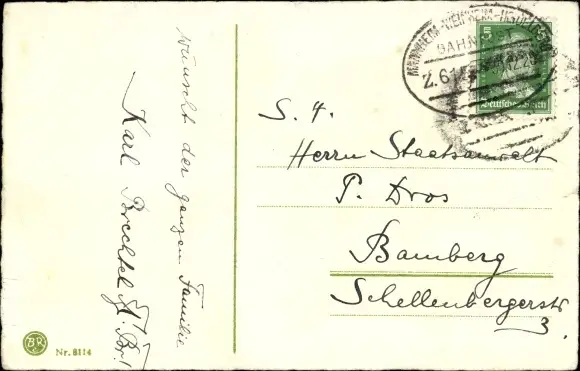 wünscht der ganzen Familie
Karl Brechtel
MANNHEIM-WEINHEIM-HEIDELBERG
BAHNPOST
Z.61
5
Deutsches Reich
S. H.
Herrn Staatsanwalt
P. Dros
Bamberg
Schellenbergerstr
3.
BR
Nr. 8114